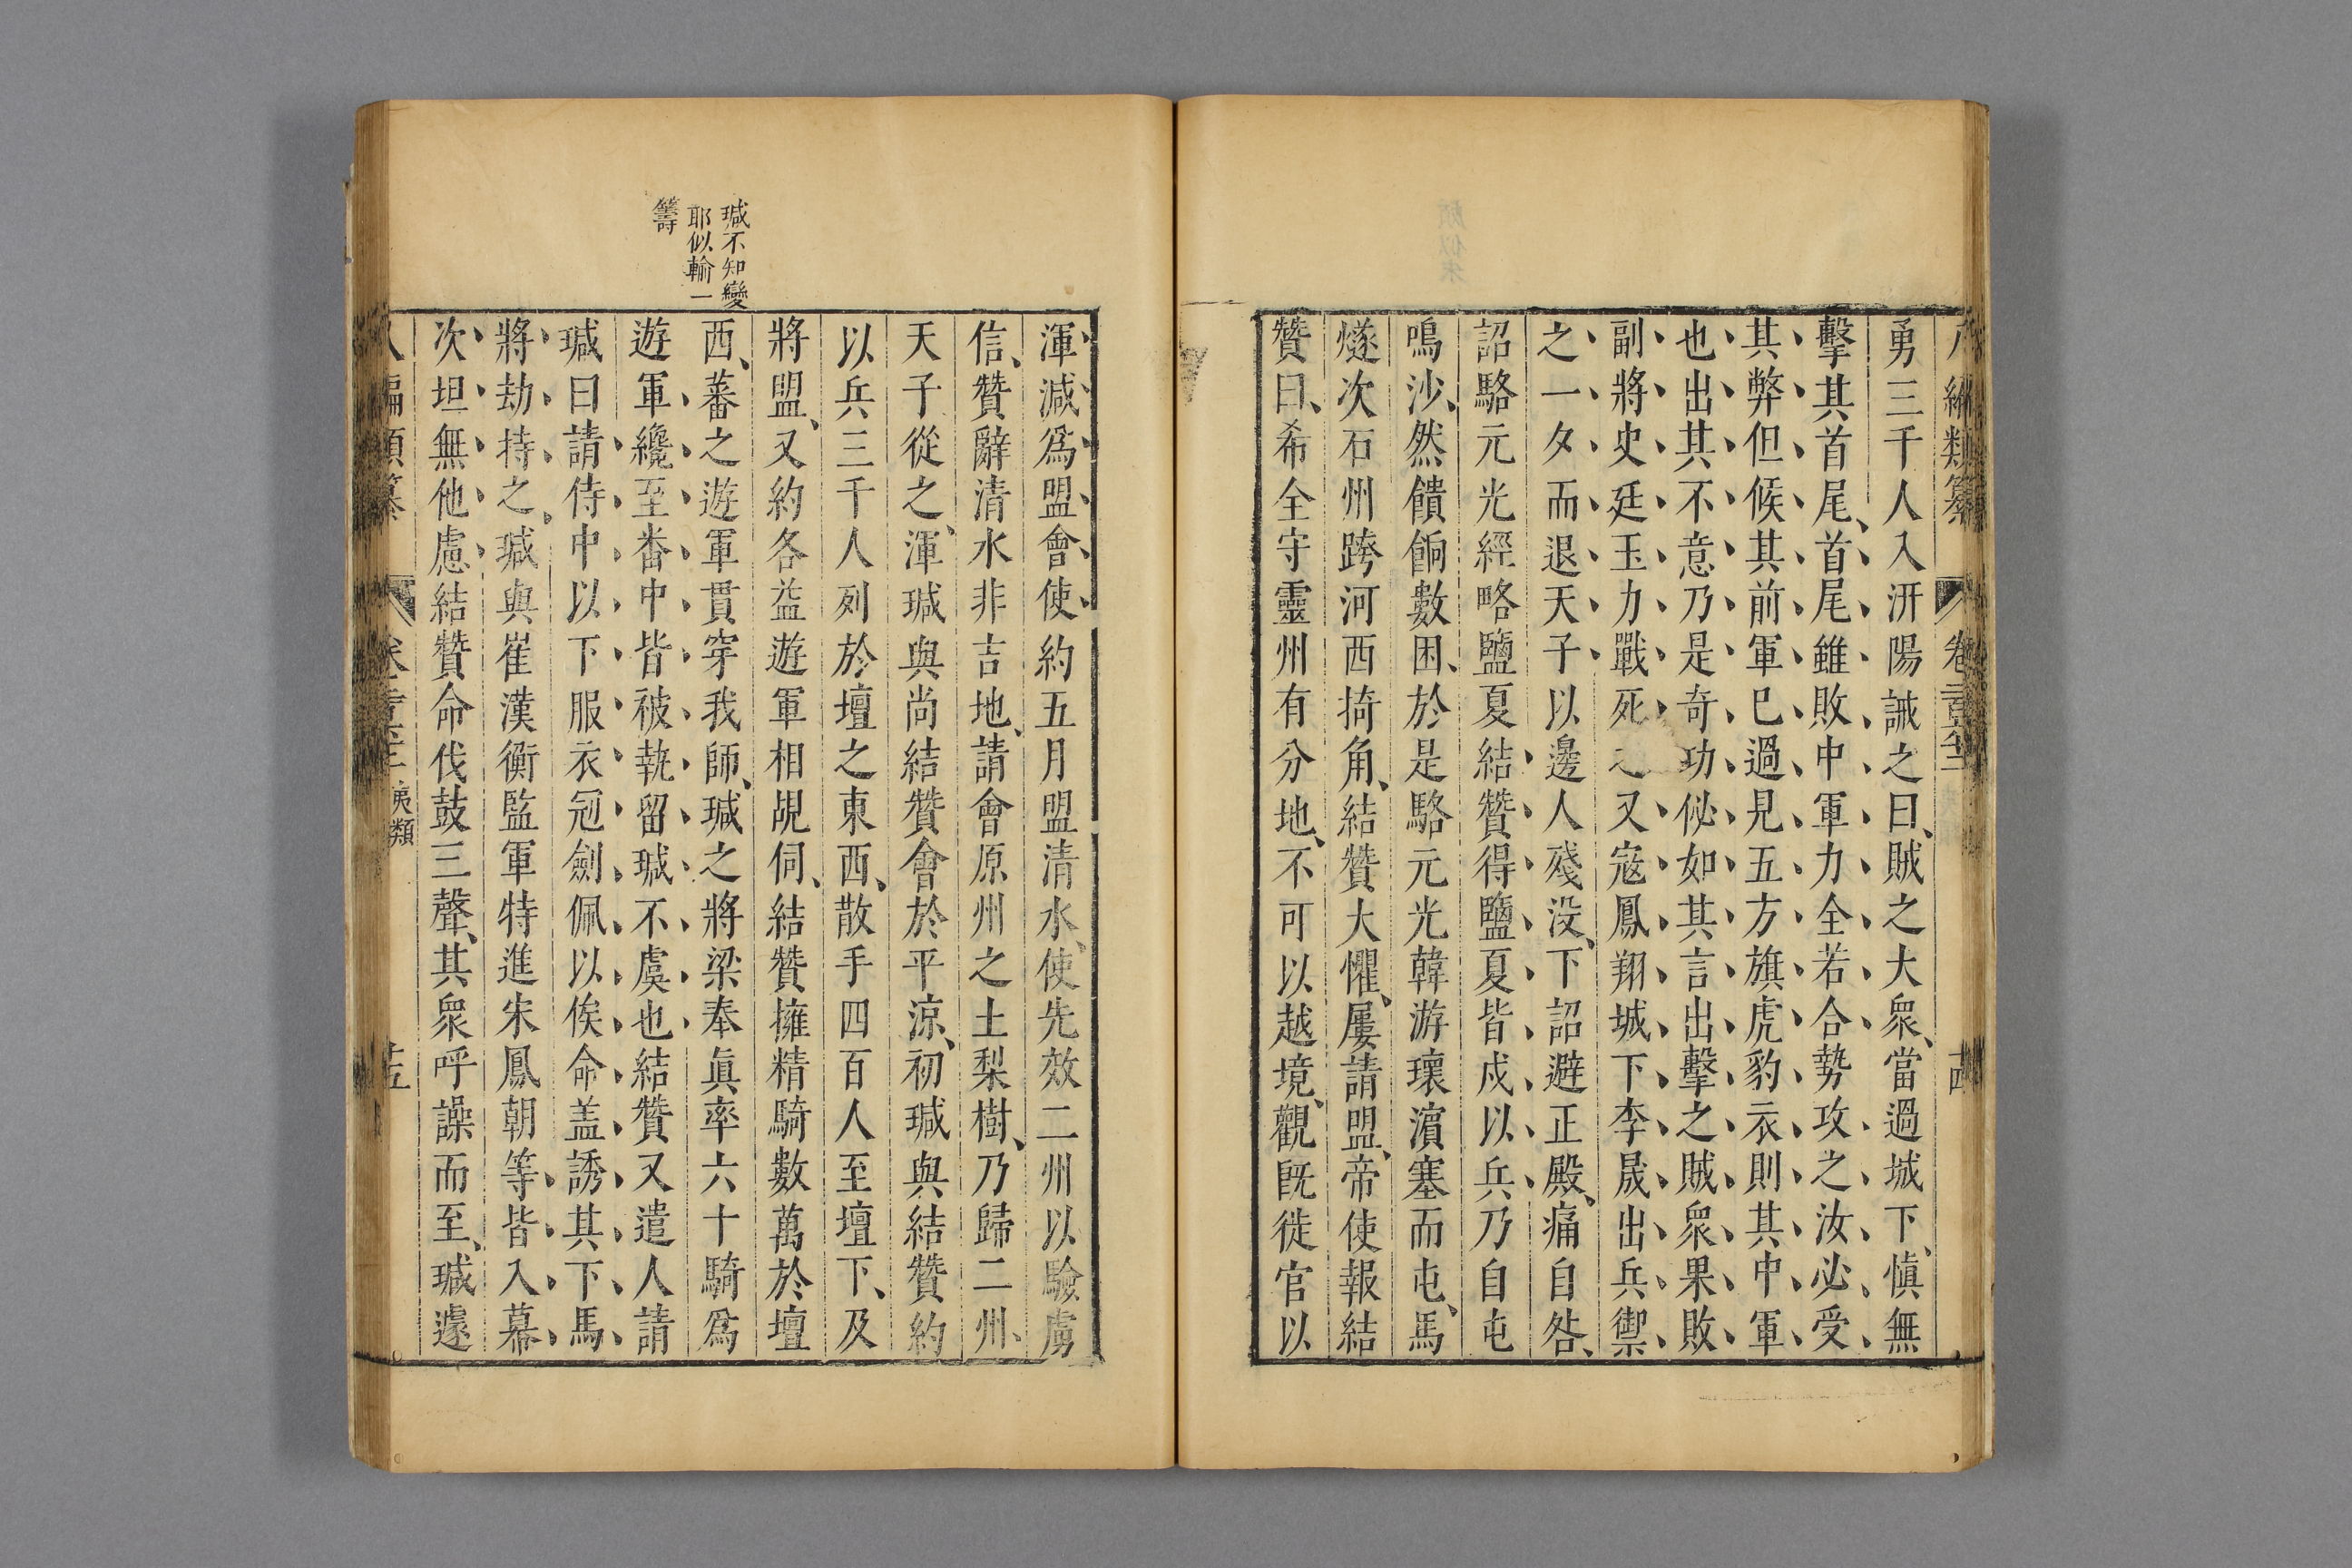 勇三千人入汧陽誡之曰、賊之大衆、當過城下、愼無
擊其首尾、首尾雖敗中軍力全若合勢攻之汝必受
其弊但候其前軍巳過見五方旗虎豹衣則其中軍
也出其不意乃是奇功佖如其言出擊之賊衆果敗
副將史廷玉力戰死之又寇鳳翔城下李晟出兵禦
之一夕而退天子以邊人殘没、下詔避正殿、痛自咎、
詔駱元光經略鹽夏結贊得鹽夏皆戍以兵乃自屯
鳴沙、然饋餉數困、於是駱元光韓游瓌濵塞而屯、馬
燧次石州跨河西掎角、結贊大懼、屢請盟、帝使報結
贊曰、希全守靈州有分地、不可以越境、觀旣徙官以
瑊不知變
耶似輸一
籌
渾減爲盟會使約五月盟清水、使先效二州以驗虜
信、贊辭清水非吉地、請會原州之土梨樹、乃歸二州、
天子從之、渾瑊與尚結贊會於平涼、初瑊與結贊約
以兵三千人列於壇之東西、散手四百人至壇下、及
將盟、又約各益遊軍相覘伺、結贊擁精騎數萬於壇
西、蕃之遊軍貫穿我師、瑊之將梁奉眞率六十騎爲
遊軍纔至畨中皆被執留瑊不虞也結贊又遣人請
瑊曰請侍中以下服衣冠劍佩以俟命盖誘其下馬
將劫持之、瑊與崔漢衡監軍特進宋鳳朝等皆入幕
次坦無他慮結贊命伐鼓三聲、其衆呼譟而至、瑊遽